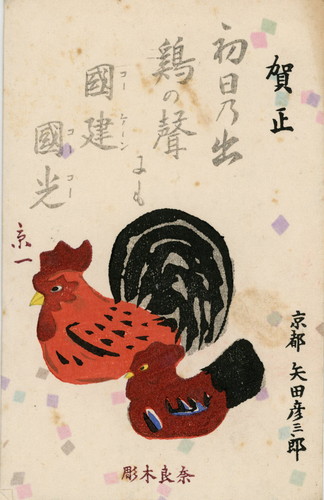 賀正
初日乃出
鶏の聲
にも
國建
コーケーン
國光
コッコー
京一
京都 矢田彦三郎
彫木良奈